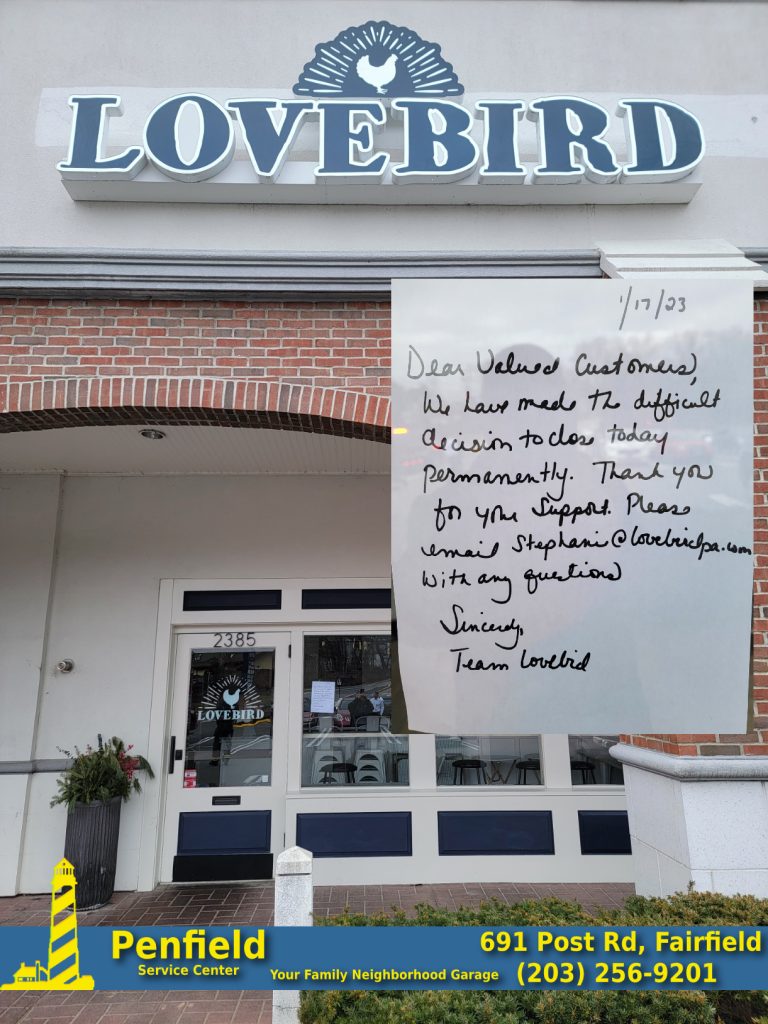 LOVEBIRD
1/17/23
Dear Valued Customers,
We have made the difficult
decision to close today
permanently. Thank you
for your support. Please
email Stephani@lovebirdpa.com
with any questions
Sincerely,
Team Lovebird
2385
LOVEBIRD
Penfield
Service Center
Your Family Neighborhood Garage
691 Post Rd, Fairfield
(203) 256-9201